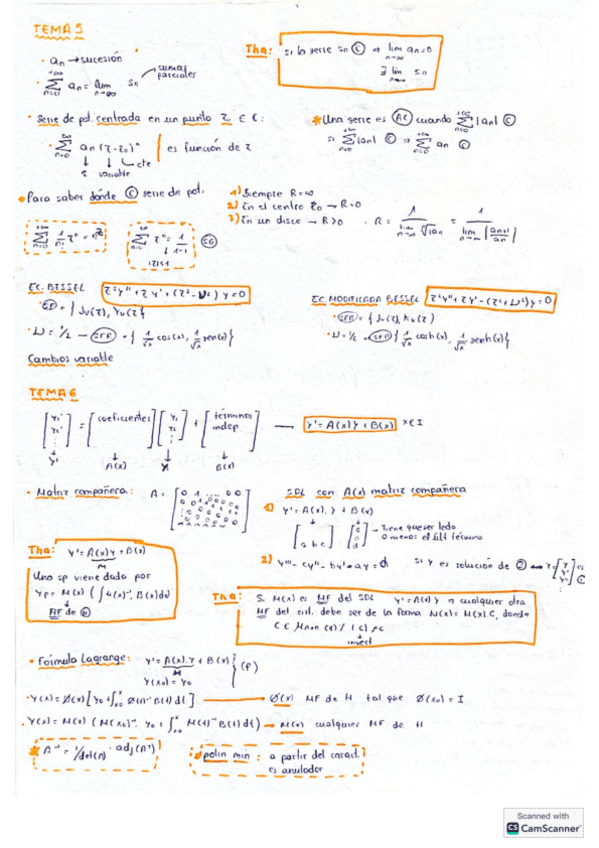 TEMA 5
· an → sucesión
· Σ an = lim Sn → sumas parciales
n=0 n→∞
Tha: si la serie sn (C) ⇒ lim an=0
n→∞
∃ lim sn
n→∞
· Serie de pot. centrada en un punto z₀ ∈ C:
· Σ an (z-z₀)ⁿ | es función de z
n=0
cte
variable
* Una serie es (AC) cuando Σ |an| (C)
si Σ |an| (C) ⇒ Σ an (C)
* Para saber dónde (C) serie de pot.
1) Siempre R=∞
2) En el centro z₀ → R=0
3) En un disco → R>0 . R = 1 / lim ⁿ√|an| = 1 / lim |an+1/an|
Σ 1/n! zⁿ = e^z
Σ zⁿ = 1/1-z (SG)
|z|<1
EC. BESSEL z²y''+zy'+(z²-ν²)y=0
· SF = { Jν(z), Yν(z)}
· ν=1/2 → SFF = { 1/√x cos(x), 1/√x sen(x)}
EC. MODIFICADA BESSEL z²y''+zy'-(z²+ν²)y=0
· SFF = { Jν(z), Kν(z)}
· ν=1/2 → SFF { 1/√x cosh(x), 1/√x senh(x)}
Cambios variable
TEMA 6
[y₁' y₂' ⋮] = [coeficientes] [y₁ y₂ ⋮] + [términos indep.] — Y'=A(x)Y+B(x) x∈I
Y' A(x) Y B(x)
· Matriz compañera: A =
SDL con A(x) matriz compañera
1) Y'=A(x).Y+B(x)
[a b c] → Tiene que ser todo 0 menos el últ término
2) y'''-cy''-by'-ay=d si y es solución de (2) ⟷ Y=[y y' y'']
Tha: Y'=A(x)Y+B(x)
Una sp viene dada por
Yp=M(x) (∫M(x)⁻¹.B(x)dx)
MF de (H)
Tha: Si M(x) es MF del SDL Y'=A(x)Y ⇒ cualquier otra
MF del sist. debe ser de la forma N(x)=M(x).C, donde
invert
· Fórmula Lagrange: Y'=A(x).Y+B(x) } (P)
Y(x₀)=Y₀
· Y(x)=Ø(x)[Y₀+∫Ø(t)⁻¹B(t)dt] → Ø(x) MF de H tal que Ø(x₀)=I
· Y(x)=M(x)(M(x₀)⁻¹.Y₀+∫M(t)⁻¹B(t)dt) → M(x) cualquier MF de H
* A⁻¹=1/det(A) . adj(Aᵗ)
* polin min: a partir del caract.
es anulador
Scanned with
CS CamScanner